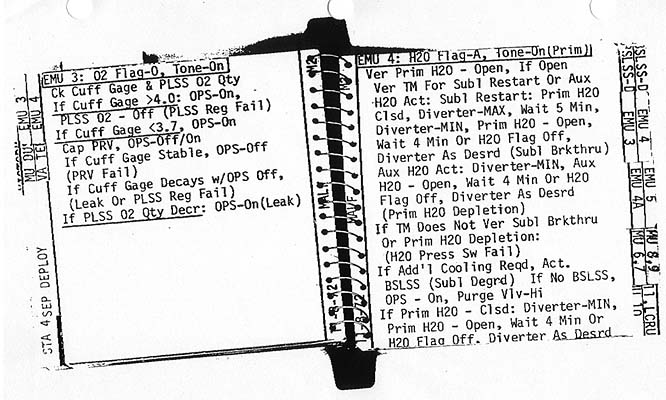 EMU 3: O2 Flag-O, Tone-On
Ck Cuff Gage & PLSS O2 Qty
If Cuff Gage >4.0: OPS-On,
PLSS O2 - Off (PLSS Reg Fail)
If Cuff Gage <3.7, OPS-On
Cap PRV, OPS-Off/On
If Cuff Gage Stable, OPS-Off
(PRV Fail)
If Cuff Gage Decays w/OPS Off,
(Leak Or PLSS Reg Fail)
If PLSS O2 Qty Decr: OPS-On(Leak)
EMU 3
EMU 4
VIA TEL
STA 4
SEP DEPLOY
EMU 4: H2O Flag-A, Tone-On(Prim)
Ver Prim H2O - Open, If Open
Ver TM For Subl Restart Or Aux
H2O Act: Subl Restart: Prim H2O
Clsd, Diverter-MAX, Wait 5 Min,
Diverter-MIN, Prim H2O - Open,
Wait 4 Min Or H2O Flag Off,
Diverter As Desrd (Subl Brkthru)
Aux H2O Act: Diverter-MIN, Aux
H2O - Open, Wait 4 Min Or H2O
Flag Off, Diverter As Desrd
(Prim H2O Depletion)
If TM Does Not Ver Subl Brkthru
Or Prim H2O Depletion:
(H2O Press Sw Fail)
If Add'l Cooling Reqd, Act.
BSLSS (Subl Degrd) If No BSLSS,
OPS - On, Purge Vlv-Hi
If Prim H2O - Clsd: Diverter-MIN,
Prim H2O - Open, Wait 4 Min Or
H2O Flag Off, Diverter As Desrd
EMU 3
EMU 4
EMU 4A
EMU 5
EMU 6,7
EMU 8,9
LCRU